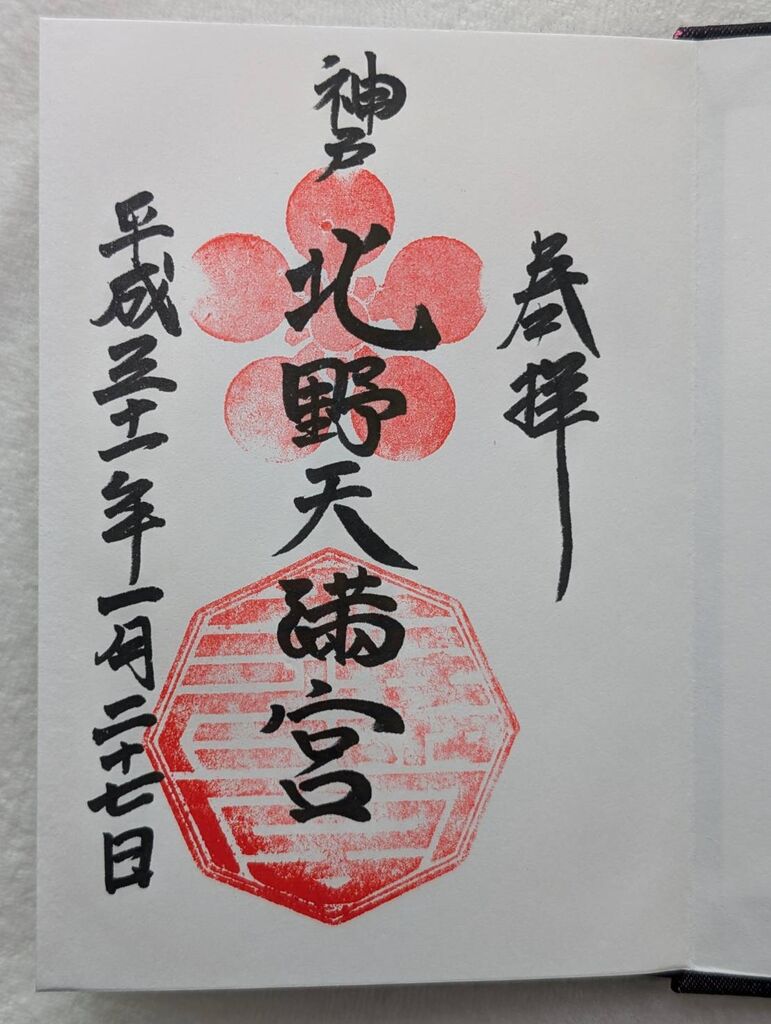 奉拝
神戸
北野天満宮
平成三十一年一月二十七日